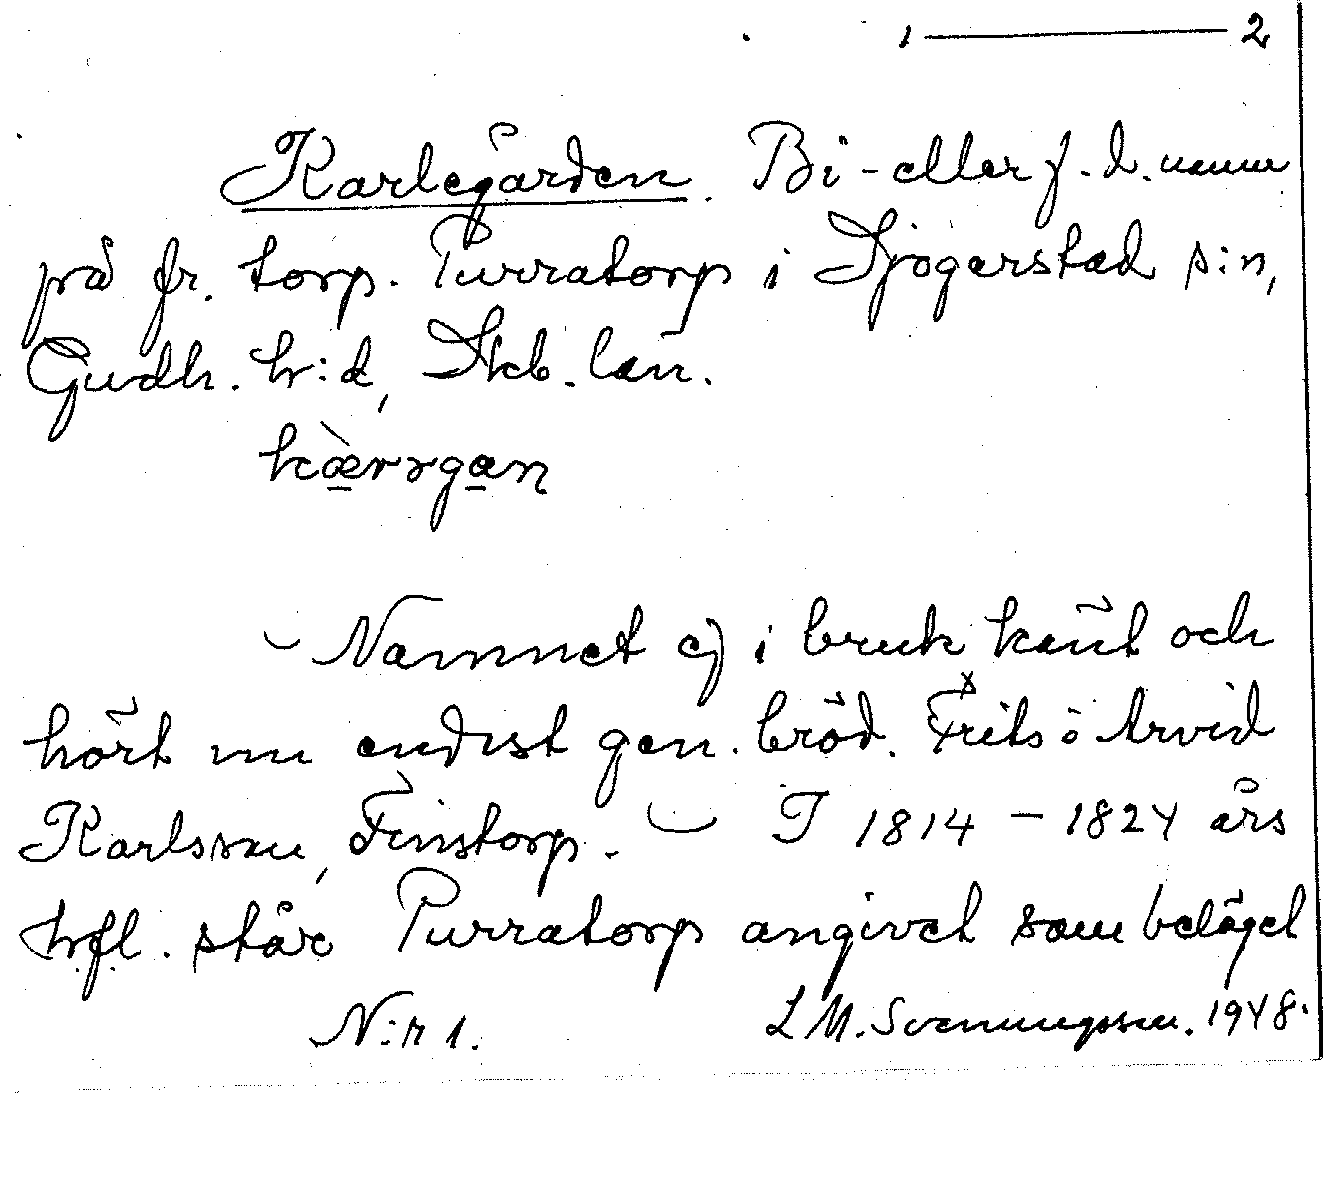 1 — 2
Karlegården. Bi- eller f. d. namn
på fr. torp. Purratorp i Sjogerstad s:n,
Gudh. h:d, Skb. län.
kæ̀rrgan
– Namnet ej i bruk känt och
hört nu endast gen. bröd. Frits o Arvid
Karlsson, Finstorp. – I 1814 – 1824 års
hfl. står Purratorp angivet som beläget
N:r 1. L M. Svenungsson. 1948.